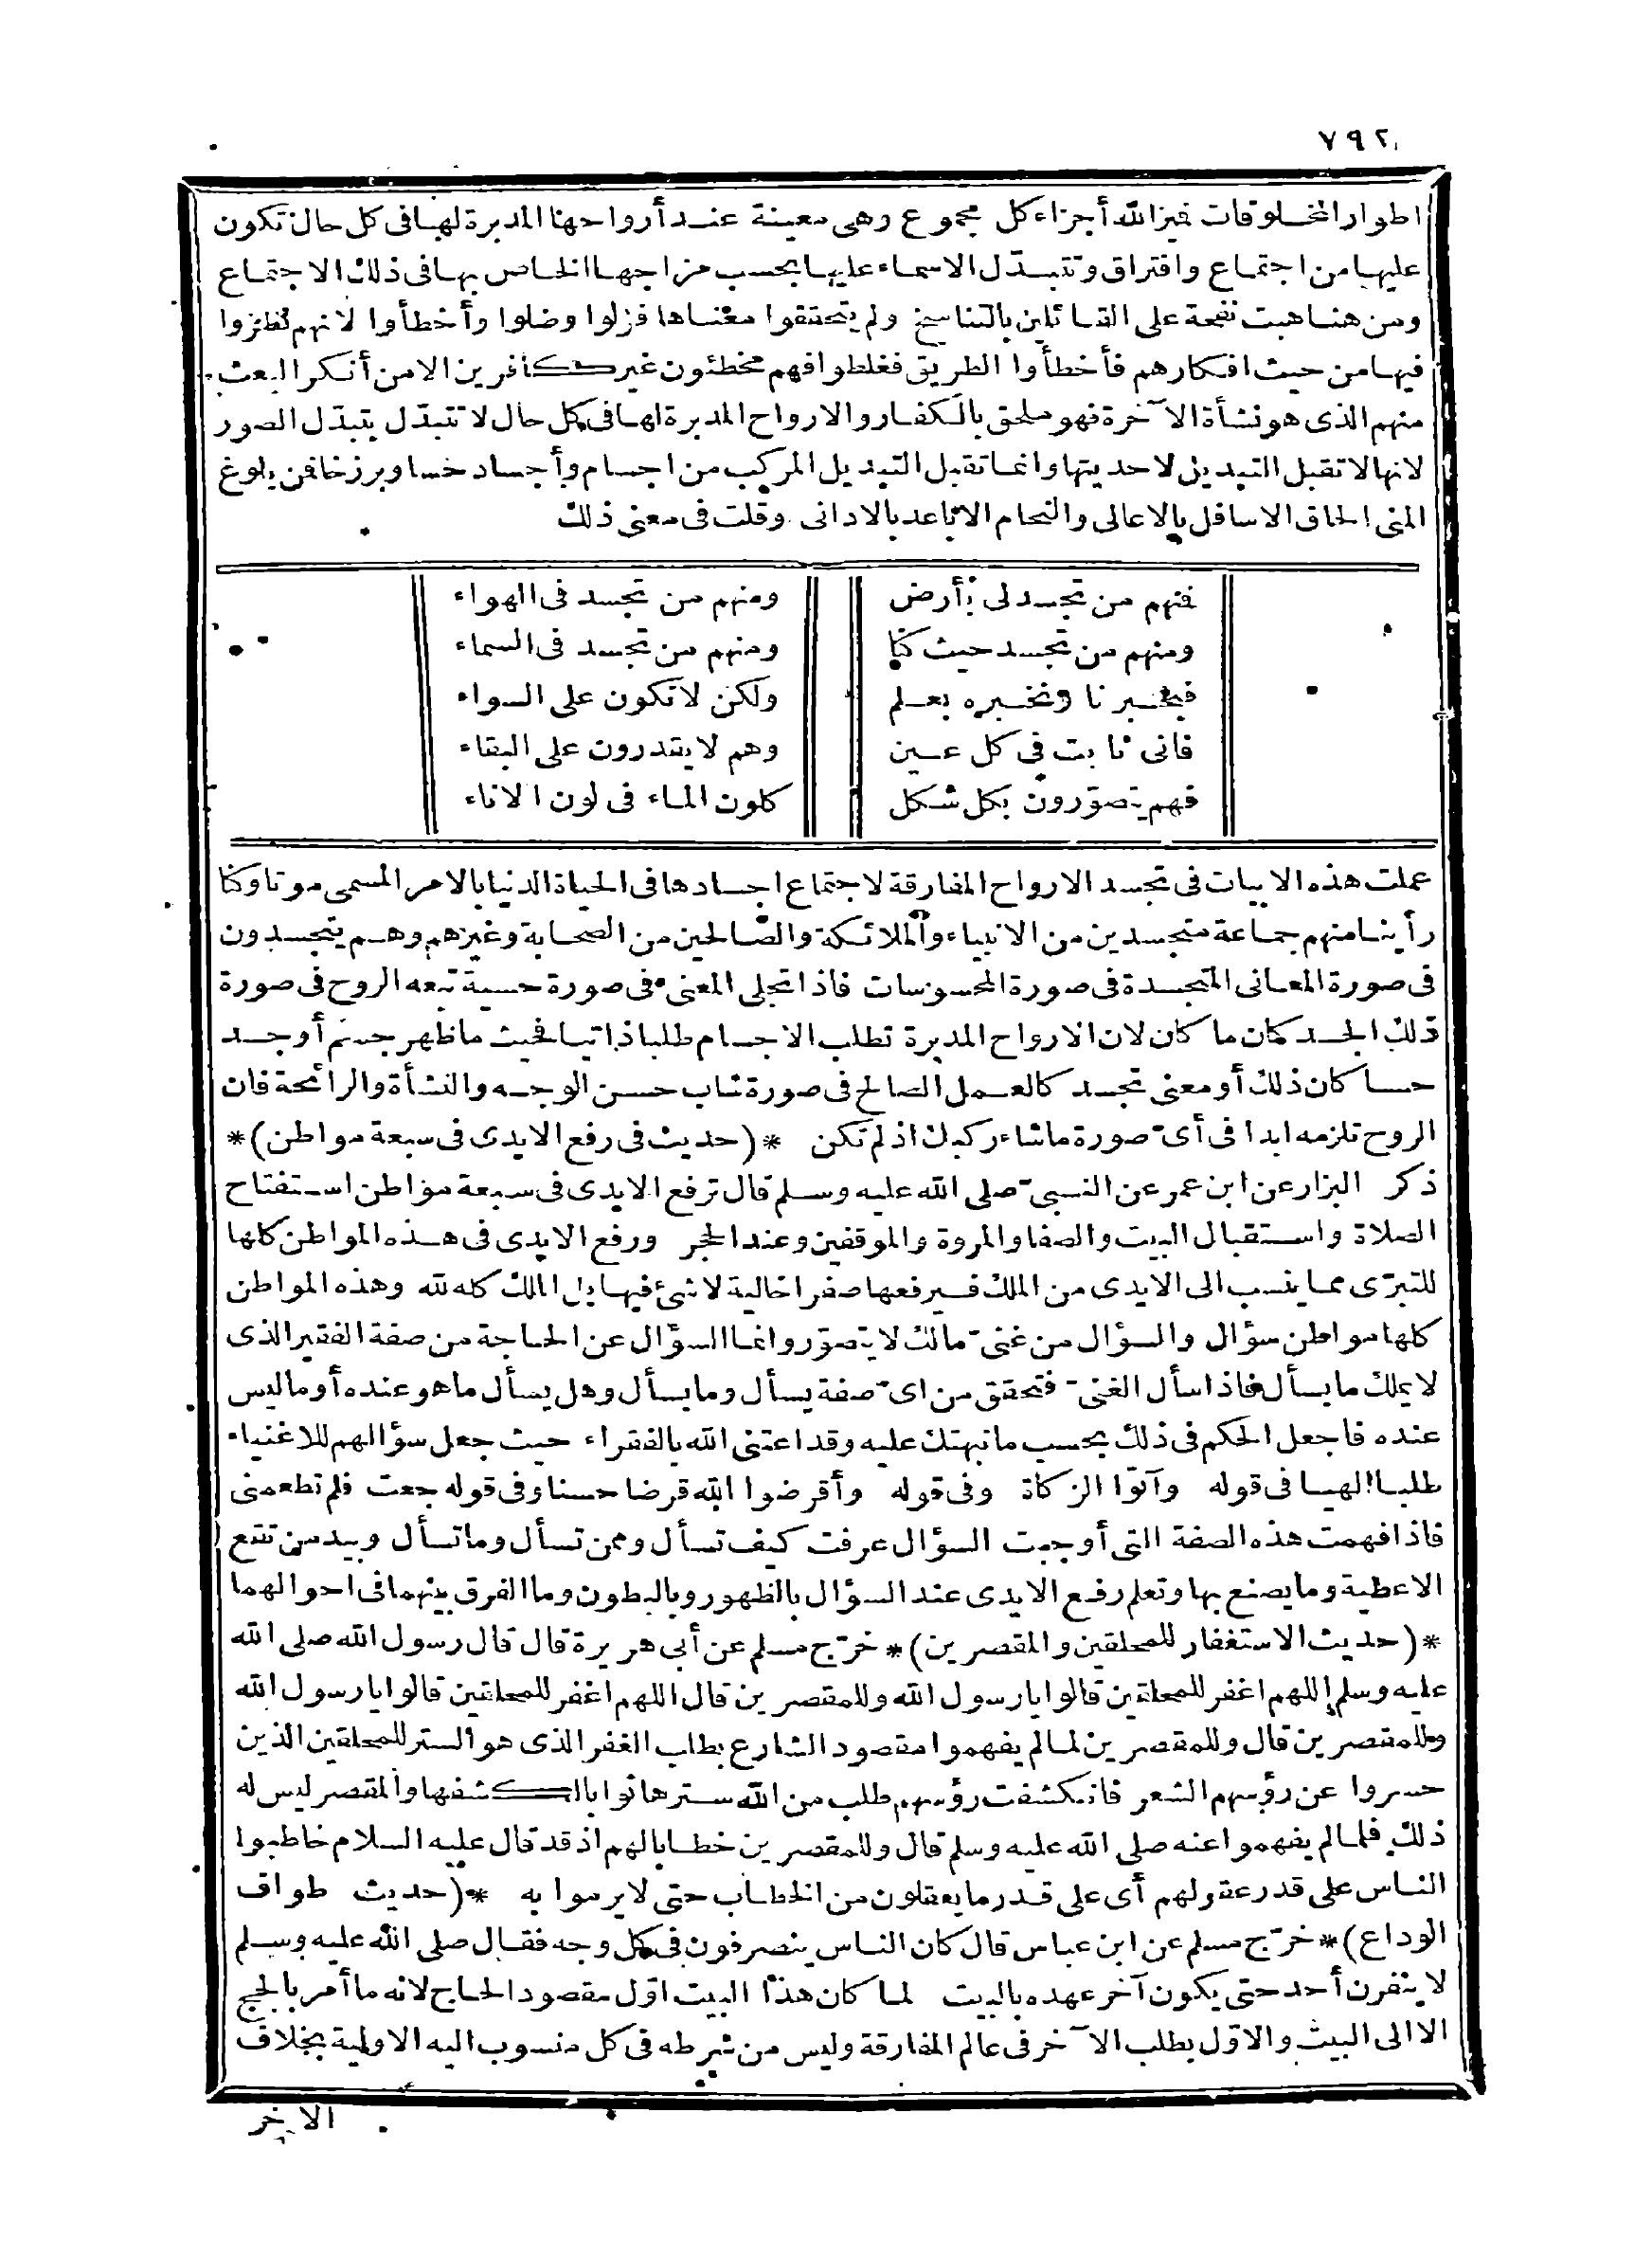 ٧٩٢
اطوار المخلوقات فيزالله أجزاء كل مجموع وهى معينة عند أرواحها المدبرة لها فى كل حال تكون
عليها من اجتماع وافتراق وتتبدّل الاسماء عليها بحسب مزاجها الخاص بها فى ذلك الاجتماع
ومن هنا هبت نفحة على القائلين بالتناسخ ولم يتحققوا معناها فزلوا وضلوا وأخطأوا لانهم نظروا
فيها من حيث افكارهم فأخطأوا الطريق فغلطوا فهم مخطئون غير كافرين الا من أنكر البعث
منهم الذى هو نشأة الآخرة فهو ملحق بالكفار والارواح المدبرة لها فى كل حال لا تتبدّل بتبدّل الصور
لانها لا تقبل التبديل لاحديتها وانما تقبل التبديل المركب من اجسام وأجساد حسا وبرزخا فمن بلوغ
المنى الحاق الاسافل بالاعالى والتحام الاباعد بالادانى وقلت فى معنى ذلك
فمنهم من تجسد لى بأرض ومنهم من تجسد فى الهواء
ومنهم من تجسد حيث كنا ومنهم من تجسد فى السماء
فيخبرنا ونخبره بعلم ولكن لا تكون على السواء
فانى ثابت فى كل عين وهم لا يقدرون على البقاء
فهم يتصوّرون بكل شكل كلون الماء فى لون الاناء
عملت هذه الابيات فى تجسد الارواح المفارقة لاجتماع اجسادها فى الحياة الدنيا بالامر المسمى موتا وكنا
رأينا منهم جماعة متجسدين من الانبياء والملائكة والصالحين من الصحابة وغيرهم وهم يتجسدون
فى صورة المعانى المتجسدة فى صورة المحسوسات فاذا تجلى المعنى فى صورة حسية تبعه الروح فى صورة
ذلك الجسد كان ما كان لان الارواح المدبرة تطلب الاجسام طلبا ذاتيا فحيث ما ظهر جسم أو جسد
حسا كان ذلك أو معنى تجسد كالعمل الصالح فى صورة شاب حسن الوجه والنشأة والرائحة فان
الروح تلزمه ابدا فى أىّ صورة ما شاء ركبك اذ لم تكن *(حديث فى رفع الايدى فى سبعة مواطن)*
ذكر البزار عن ابن عمر عن النبىّ صلى الله عليه وسلم قال ترفع الايدى فى سبعة مواطن استفتاح
الصلاة واستقبال البيت والصفا والمروة والموقفين وعند الحجر ورفع الايدى فى هذه المواطن كلها
للتبرّى مما ينسب الى الايدى من الملك فيرفعها صفرا خالية لا شئ فيها بل الملك كله لله وهذه المواطن
كلها مواطن سؤال والسؤال من غنىّ مالك لا يتصوّر وانما السؤال عن الحاجة من صفة الفقير الذى
لا يملك ما يسأل فاذا سأل الغنىّ فتحقق من اىّ صفة يسأل وما يسأل وهل يسأل ما هو عنده أو ما ليس
عنده فاجعل الحكم فى ذلك بحسب ما نبهتك عليه وقد اعتنى الله بالفقراء حيث جعل سؤالهم للاغنياء
طلبا الهيا فى قوله وآتوا الزكاة وفى قوله وأقرضوا الله قرضا حسنا وفى قوله جعت فلم تطعمنى
فاذا فهمت هذه الصفة التى أوجبت السؤال عرفت كيف تسأل وممن تسأل وما تسأل وبيد من تقع
الاعطية وما يصنع بها وتعلم رفع الايدى عند السؤال بالظهور وبالبطون وما الفرق بينهما فى احوالهما
*(حديث الاستغفار للمحلقين والمقصرين)* خرّج مسلم عن أبى هريرة قال قال رسول الله صلى الله
عليه وسلم اللهم اغفر للمحلقين قالوا يا رسول الله وللمقصرين قال اللهم اغفر للمحلقين قالوا يا رسول الله
وللمقصرين قال وللمقصرين لما لم يفهموا مقصود الشارع بطلب الغفر الذى هو الستر للمحلقين الذين
حسروا عن رؤسهم الشعر فانكشفت رؤسهم طلب من الله سترها ثوابا لكشفها والمقصر ليس له
ذلك فلما لم يفهموا عنه صلى الله عليه وسلم قال وللمقصرين خطابا لهم اذ قد قال عليه السلام خاطبوا
الناس على قدر عقولهم أى على قدر ما يعقلون من الخطاب حتى لا يرموا به *(حديث طواف
الوداع)* خرّج مسلم عن ابن عباس قال كان الناس ينصرفون فى كل وجه فقال صلى الله عليه وسلم
لا ينفرن أحد حتى يكون آخر عهده بالبيت لما كان هذا البيت اوّل مقصود الحاج لانه ما أمر بالحج
الا الى البيت والاوّل يطلب الآخر فى عالم المفارقة وليس من شرطه فى كل منسوب اليه الاولية بخلاف
الآخر